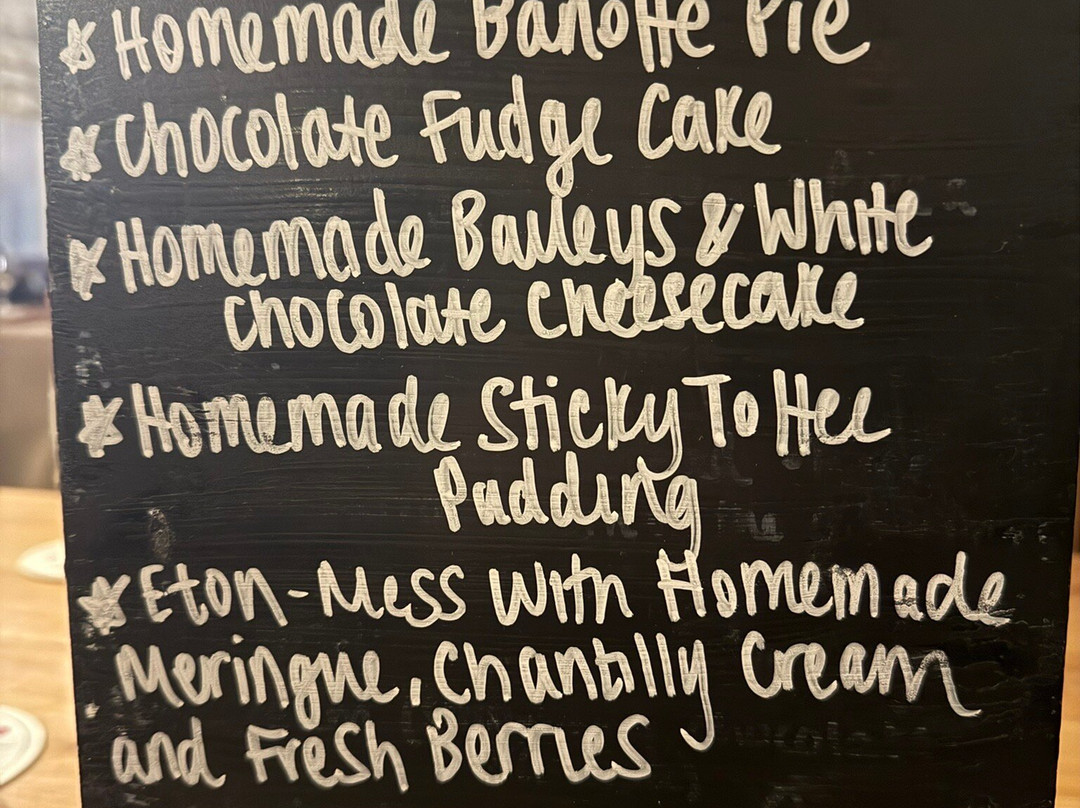 ☆ Homemade Banoffe Pie
☆ Chocolate Fudge Cake
☆ Homemade Baileys & White
Chocolate Cheesecake
☆ Homemade Sticky Toffee
Pudding
☆ Eton-Mess With Homemade
Meringue, Chantilly Cream
and Fresh Berries